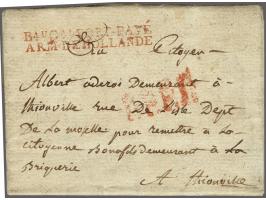 B4ᵘ GÉNÉRAL PAYÉ
ARM. DE HOLLANDE
Au Citoyen
Albert aderois Demeurant à
thionville rue De L'ile Dept
De La moselle pour remettre a La
citoyenne Bonafds demeurant à La
Briquerie
A thionville